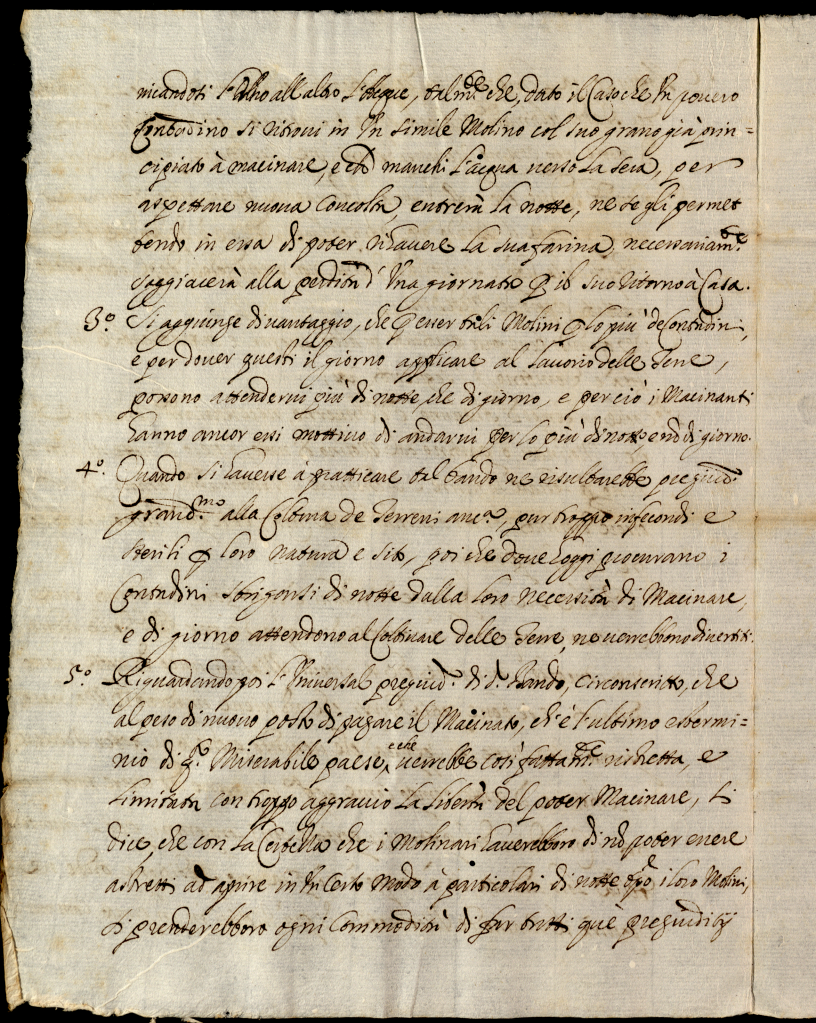 nicandosi l'altro all'altro l'Acque, talm.te che, dato il Caso che Un povero
Contadino si ritrovi in Un simile Molino col suo grano già prin=
cipiato à macinare, e che manchi l'acqua verso la sera, per
aspettare nuova Concolta, entrerà la notte, ne se gli permet
tendo in essa di poter rihavere la sua farina, necessariam.te
soggiacerà alla perdita d'Una giornata p il suo ritorno à Casa.
3.o Si aggiunge di vantaggio, che p esser tali Molini p lo più de Contadini,
e per dover questi il giorno applicare al lavorio delle Terre,
possono attendervi più di notte, che di giorno, e perciò i Macinanti
hanno ancor essi mottivo di andarvi per lo più di notte, e nò di giorno.
4.o Quando si havesse à pratticare tal bando ne risultarebbe pregiud.o
grand.mo alla Coltura de Terreni anc.a, pur troppo infecondi e
sterili p loro natura e sito, poiche dove hoggi procurano i
Contadini sbrigarsi di notte dalla loro necessità di Macinare,
e di giorno attendono al Coltivare delle Terre, ne verrebbono divertiti.
5.o Riguardando poi l'Universal pregiud.o di d.o Bando, circonscritto, che
al peso di nuovo posto di pagare il Macinato, ch'è l'ultimo estermi=
nio di q.o Miserabile paese, e che verrebbe così fattam.te ristretta, e
limitata con troppo aggravio la libertà del poter Macinare, si
dice, che con la Certezza che i Molinari haverebbero di nò poter essere
astretti ad aprire in Un Certo modo à particolari di notte tpo i loro Molini,
si prenderebbero ogni Commodità di far tutti que pregiuditij